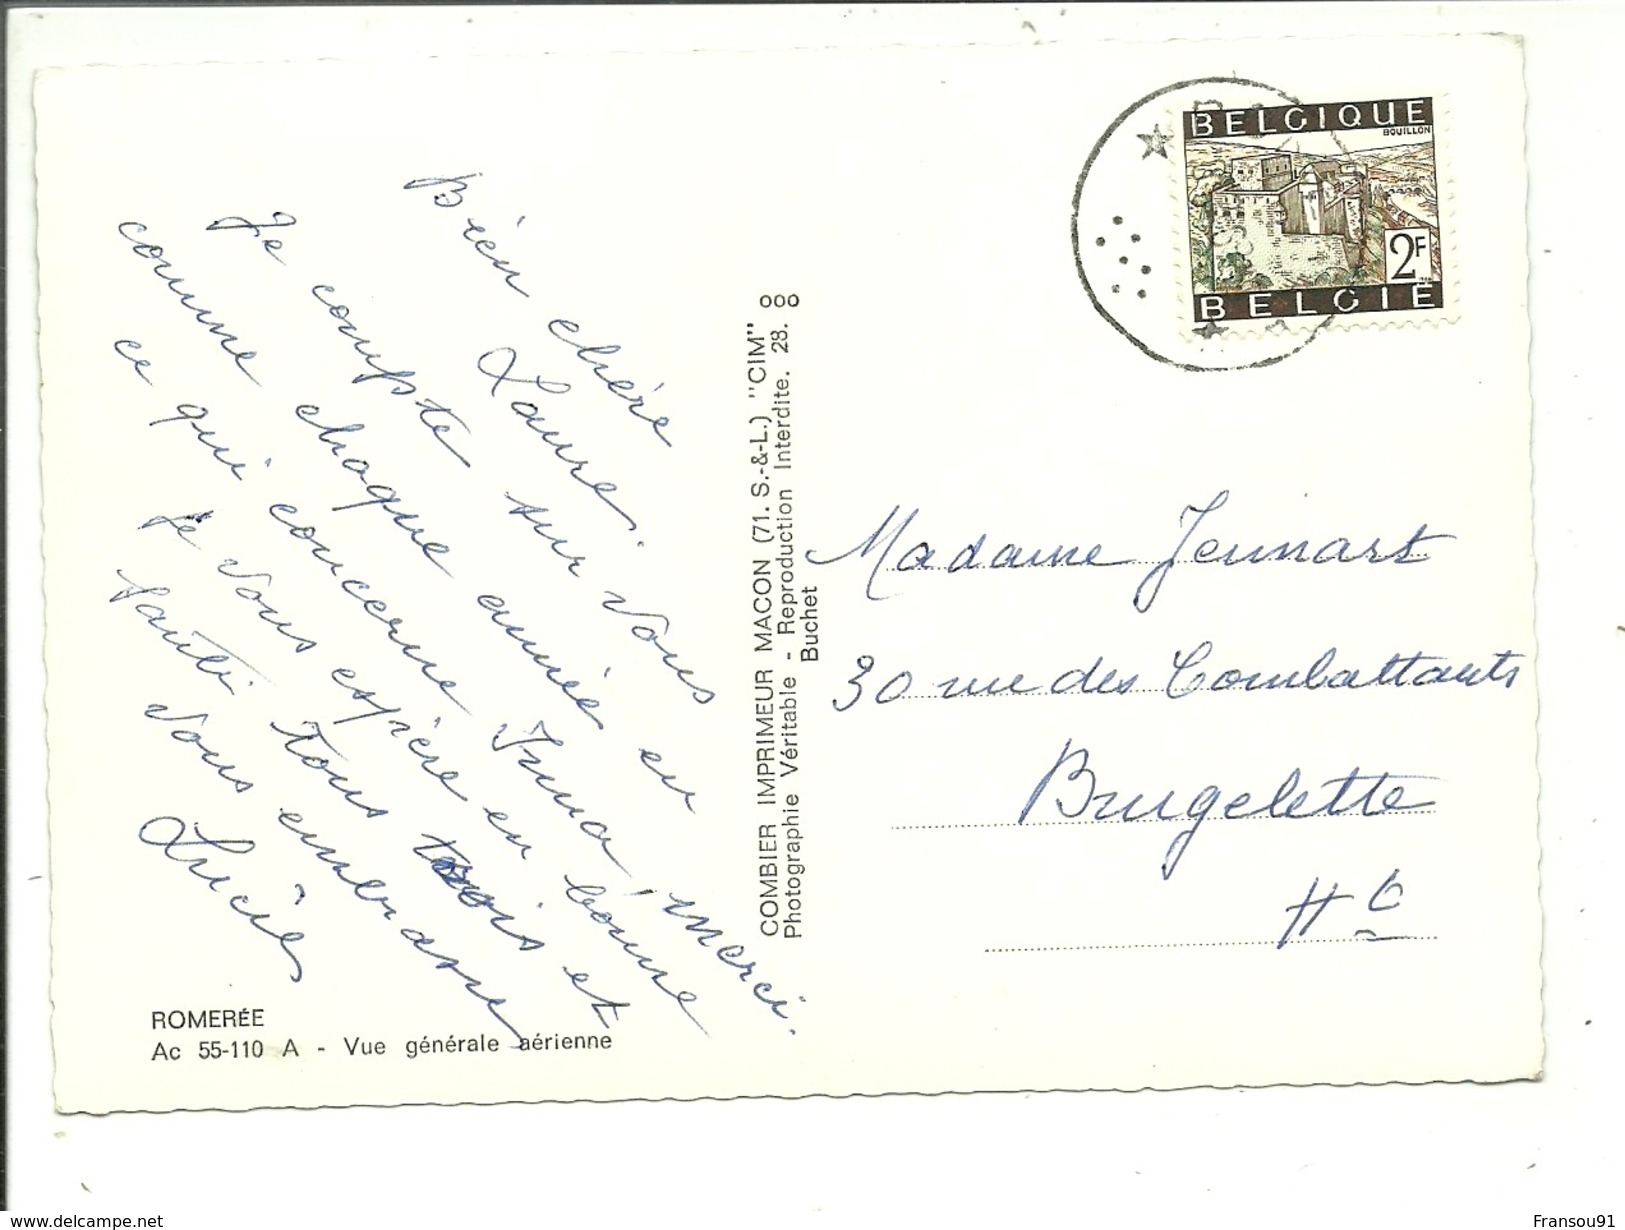 Bien chère
Laure.
Je compte sur vous
comme chaque année en
ce qui concerne Irma, merci.
Je vous espère en bonne
santé tous trois et
vous embrasse
Lucie
ROMERÉE
Ac 55-110 A - Vue générale aérienne
COMBIER IMPRIMEUR MACON (71. S.-&-L.) "CIM"
Photographie Véritable - Reproduction Interdite. 28. 000
Buchet
BELGIQUE
BOUILLON
2F
BELGIË
Madame Jennart
30 rue des Combattants
Brugelette
Ht
Fransou91
www.delcampe.net